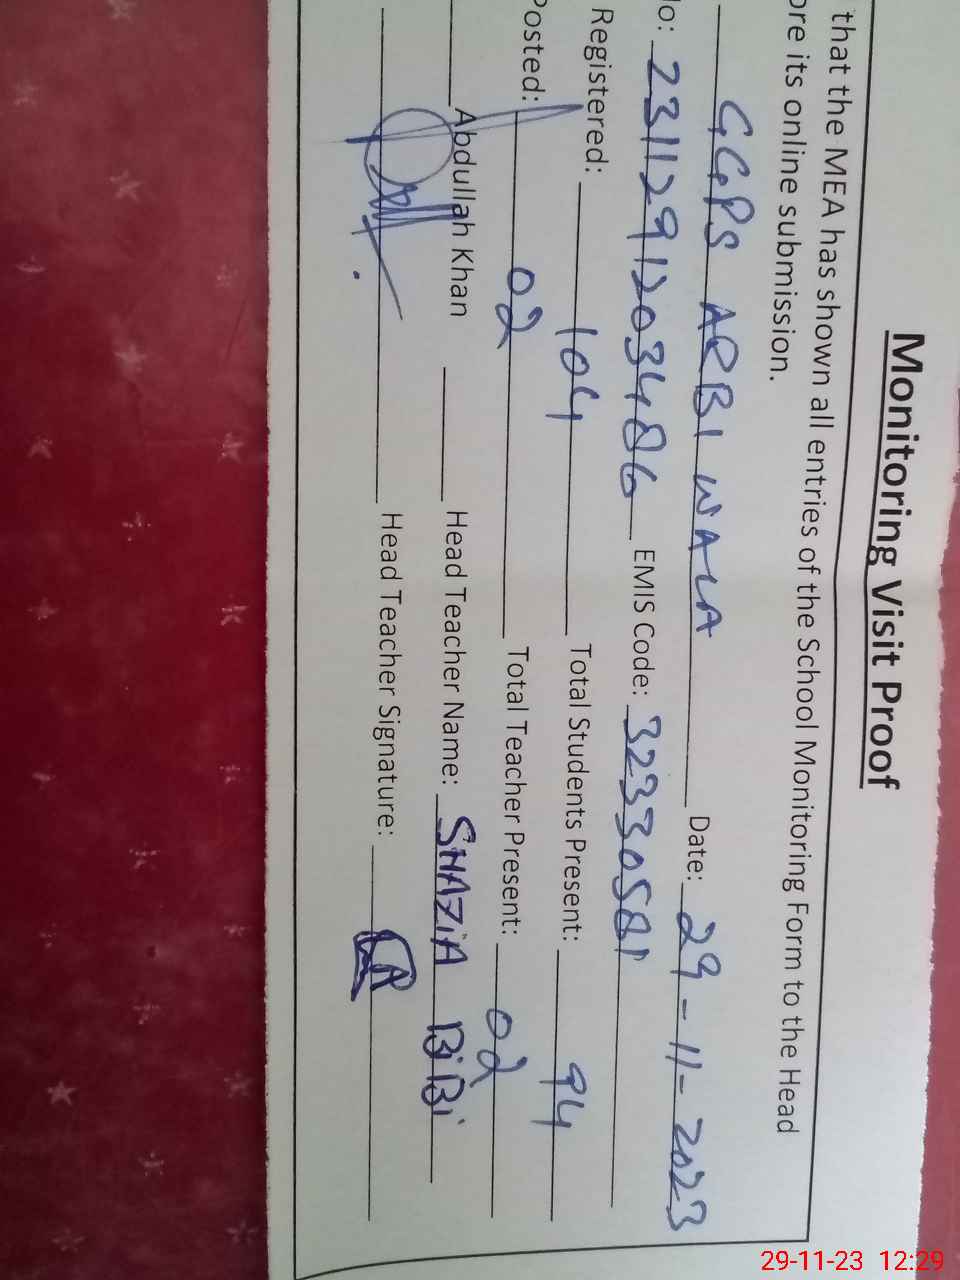 Monitoring Visit Proof
that the MEA has shown all entries of the School Monitoring Form to the Head
ore its online submission.
GGPS ARBI WALA Date: 29-11-2023
No: 2311291203486 EMIS Code: 32330581
Registered: 104 Total Students Present: 94
Posted: 02 Total Teacher Present: 02
Abdullah Khan Head Teacher Name: SHAZiA BiBi
Head Teacher Signature:
29-11-23 12:29